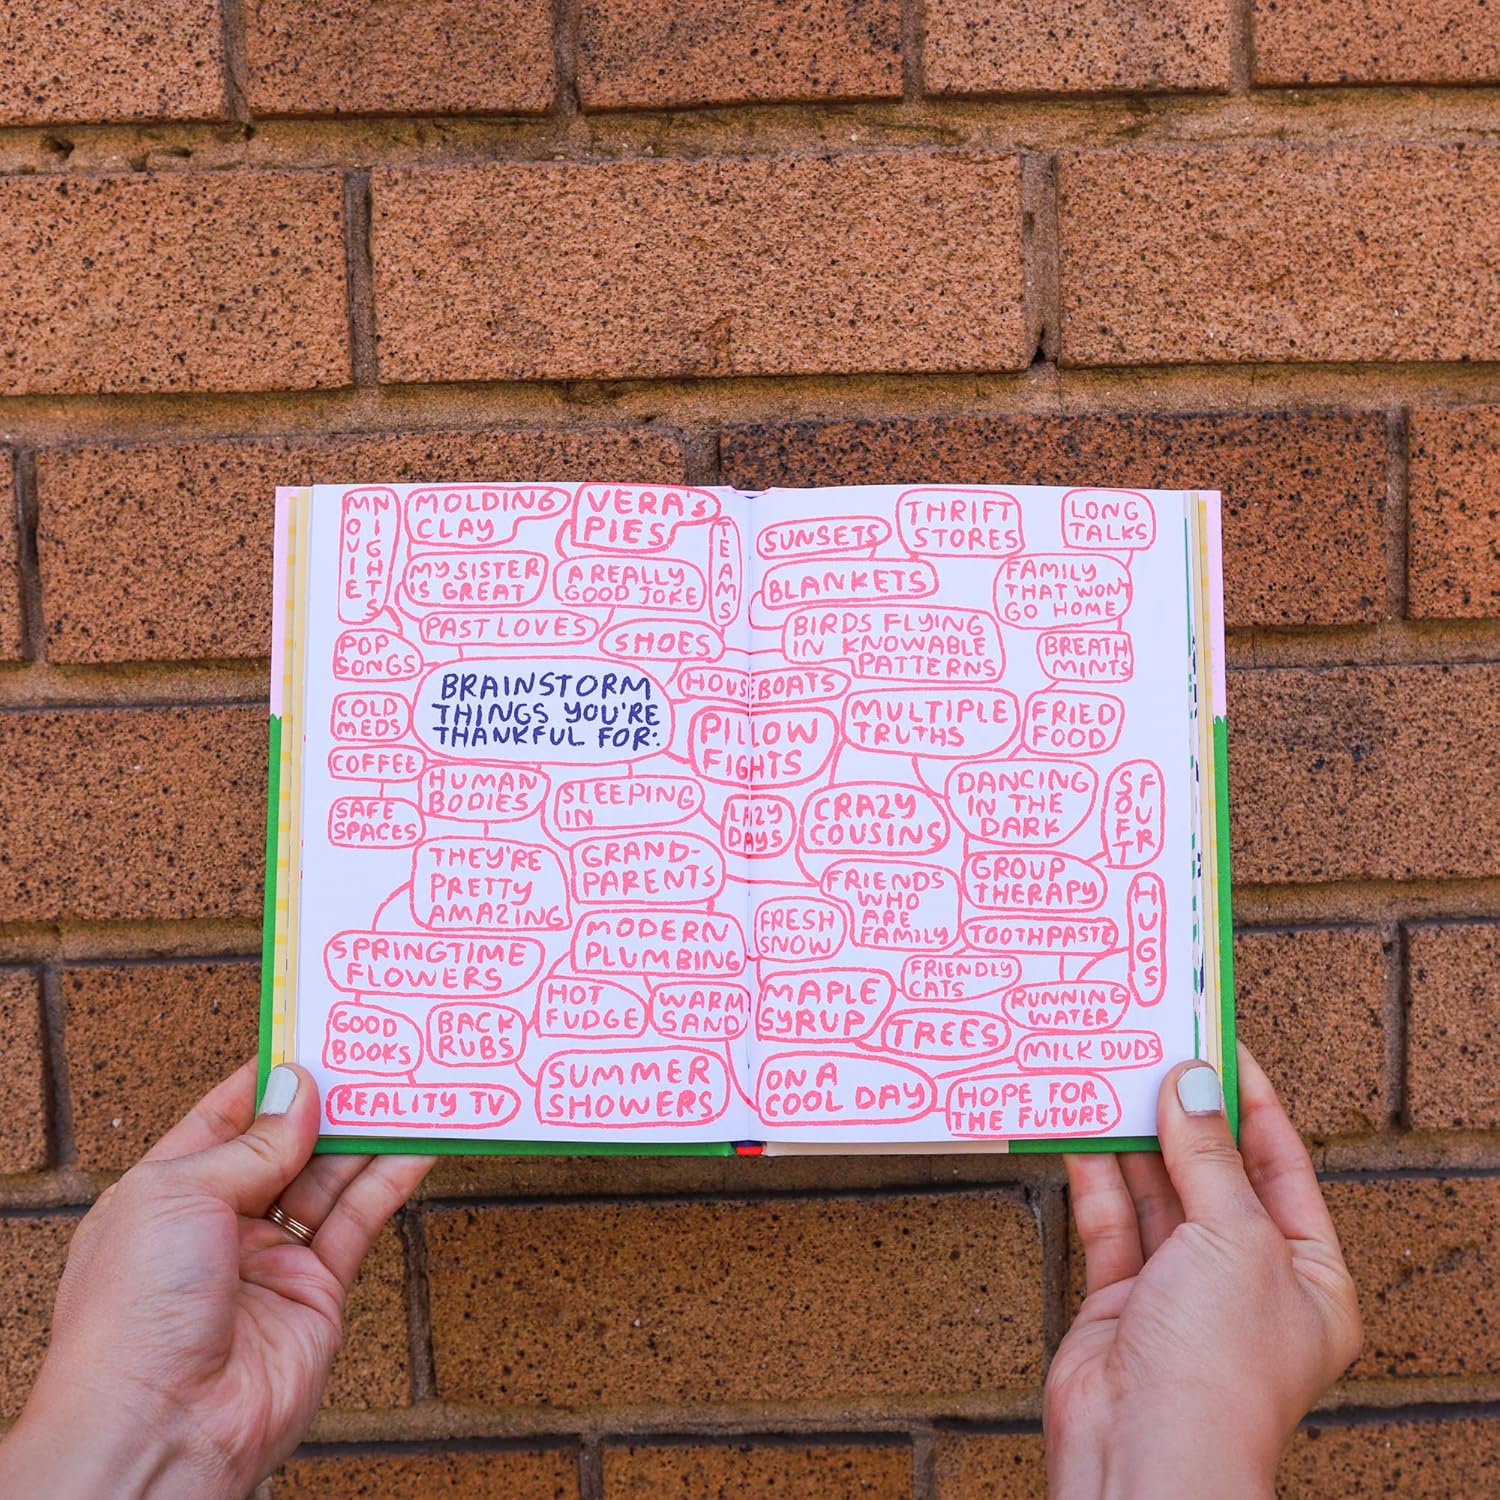 MOVIE
NIGHTS
MOLDING
CLAY
VERA'S
PIES
TEAMS
MY SISTER
IS GREAT
A REALLY
GOOD JOKE
PAST LOVES
SHOES
POP
SONGS
BRAINSTORM
THINGS YOU'RE
THANKFUL FOR:
HOUSEBOATS
COLD
MEDS
PILLOW
FIGHTS
COFFEE
HUMAN
BODIES
SLEEPING
IN
LAZY
DAYS
SAFE
SPACES
THEY'RE
PRETTY
AMAZING
GRAND-
PARENTS
SPRINGTIME
FLOWERS
MODERN
PLUMBING
GOOD
BOOKS
BACK
RUBS
HOT
FUDGE
WARM
SAND
REALITY TV
SUMMER
SHOWERS
SUNSETS
THRIFT
STORES
LONG
TALKS
BLANKETS
FAMILY
THAT WON'T
GO HOME
BIRDS FLYING
IN KNOWABLE
PATTERNS
BREATH
MINTS
MULTIPLE
TRUTHS
FRIED
FOOD
CRAZY
COUSINS
DANCING
IN THE
DARK
SOFT
FUR
FRIENDS
WHO
ARE
FAMILY
GROUP
THERAPY
HUGS
FRESH
SNOW
TOOTHPASTE
FRIENDLY
CATS
MAPLE
SYRUP
RUNNING
WATER
TREES
MILK DUDS
ON A
COOL DAY
HOPE FOR
THE FUTURE